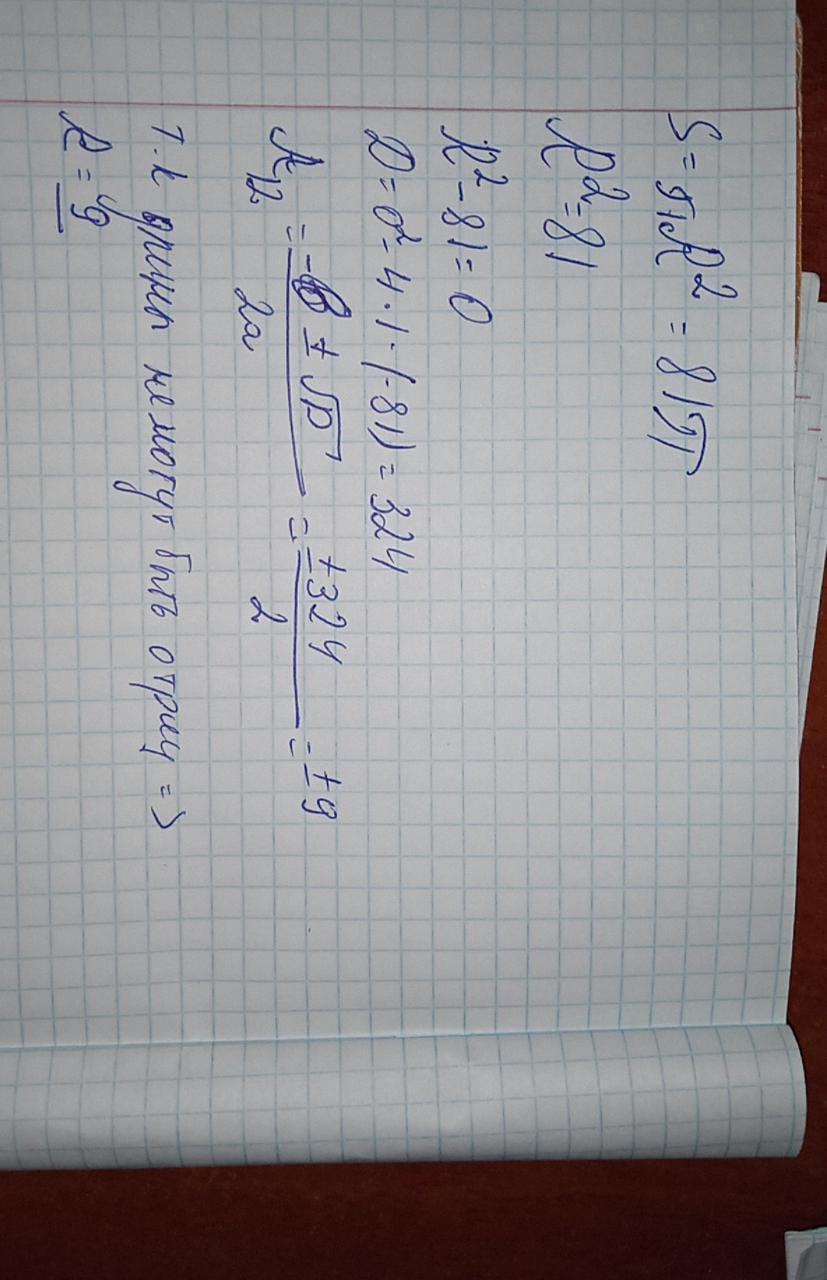 S = πR² = 81π
R² = 81
R² - 81 = 0
D = 0² - 4·1·(-81) = 324
R₁,₂ = -b ± √D / 2a = ±324 / 2 = ±9
т.к длины не могут быть отриц =>
R = 9